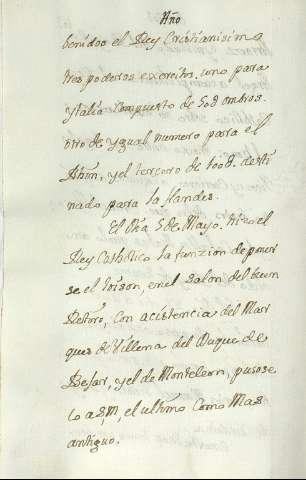 Año
benidos el Rey Cristianisimo
tres poderos exercitos, uno para
ytalia compuerto de 50d ombros.
otro de ygual numero para el
Rhin, y el tercero de 100d. desti
nado para la flandes.
El Dia 5 de Mayo. hizo el
Rey Catholico la funzion de poner
se el toison, en el salon del buen
Retiro, con acistencia del Mar
ques de Villena del Duque de
Bejar, y el de Monteleon, pusose
lo a S, M, el ultimo Como Mas
antiguo.